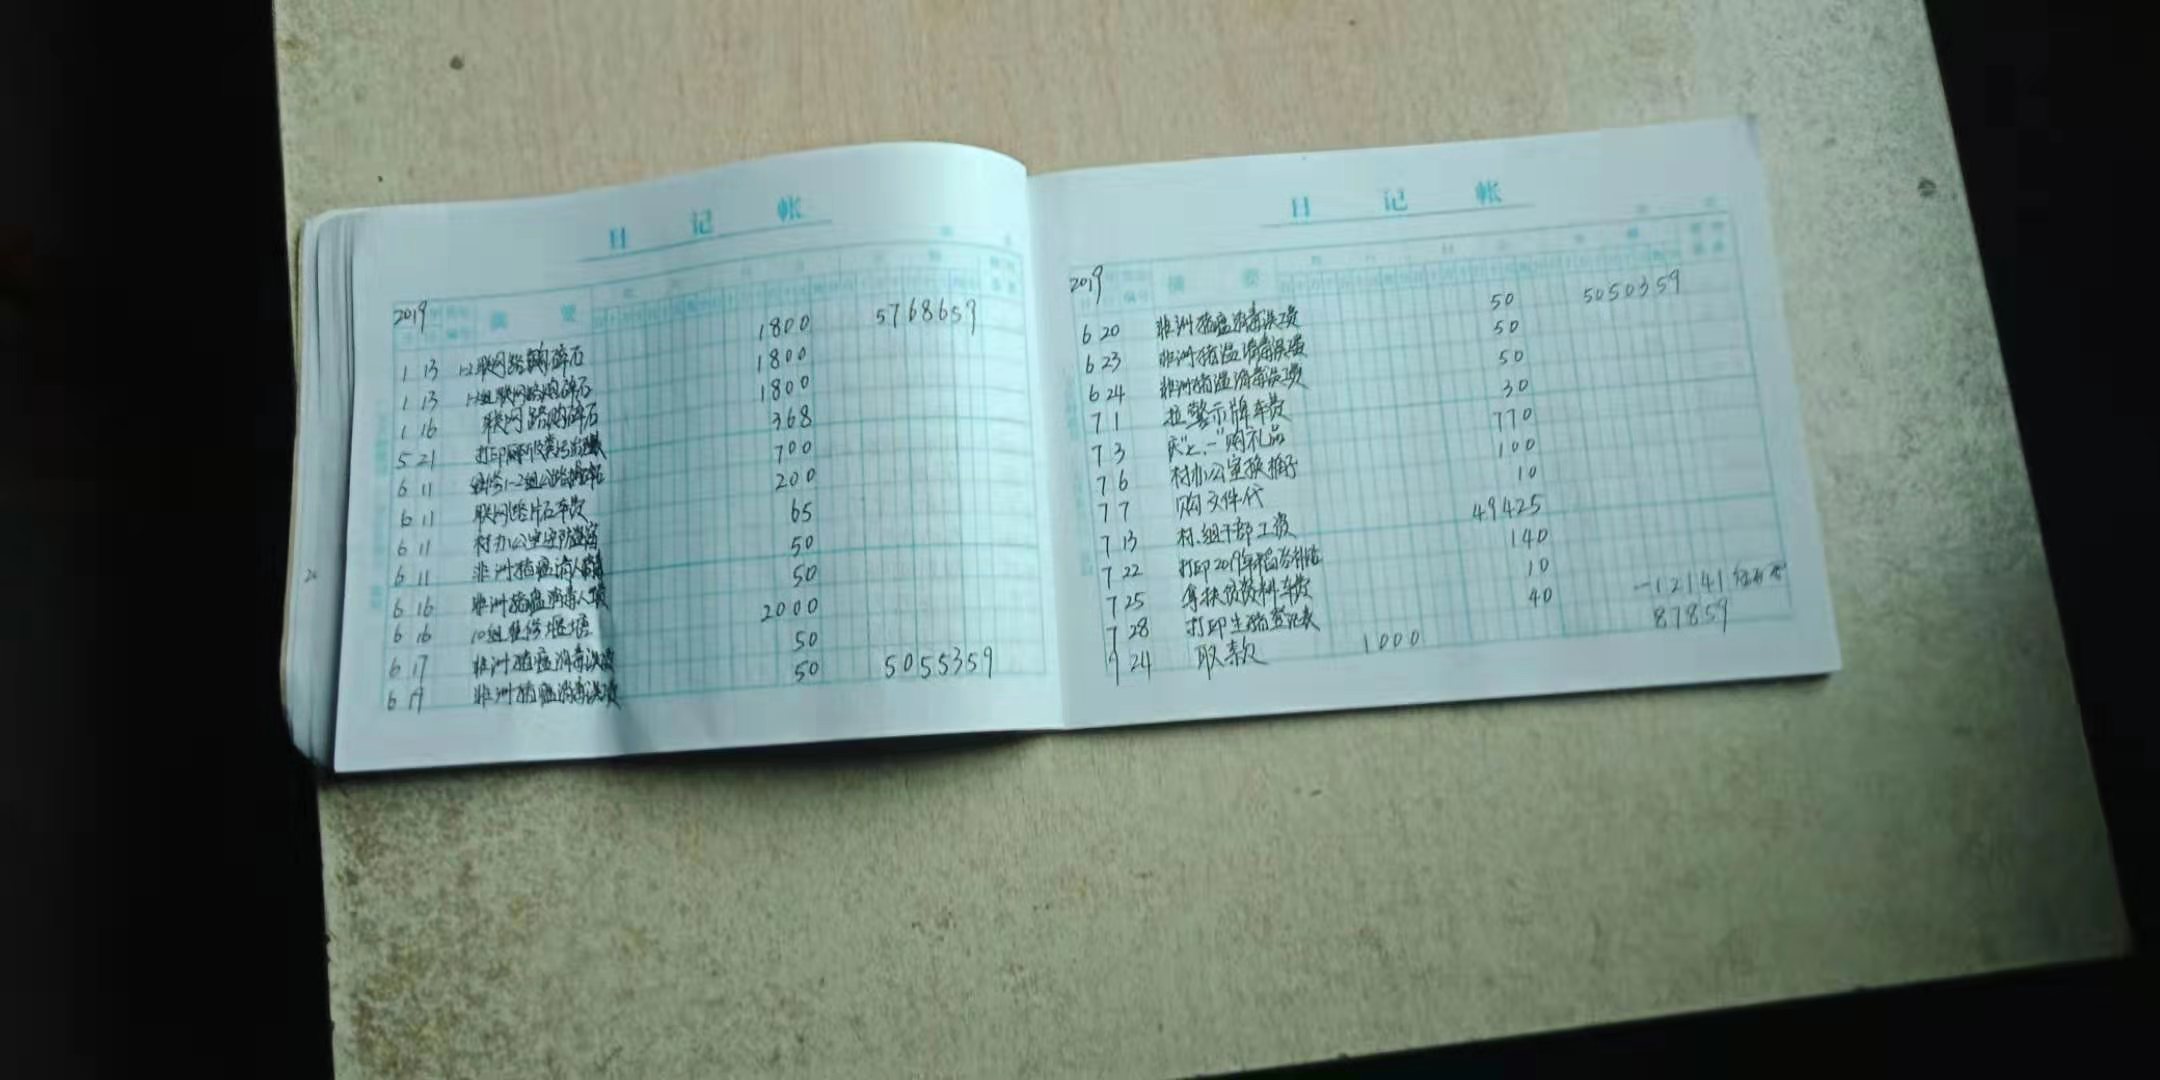 日 记 帐
2019
摘 要
1800 5768659
1 13 1-2联网路购碎石 1800
1 13 1-2组联网路购碎石 1800
1 16 联网路购碎石 368
5 21 打印 700
6 11 1-2组公路 200
6 11 联网路片石车费 65
6 11 村办公室 50
6 11 非洲猪瘟消 50
6 16 非洲猪瘟消毒人员 2000
6 16 10组整修堰塘 50
6 17 非洲猪瘟消毒误资 50 5055359
6 19 非洲猪瘟消毒误资
日 记 帐
2019
摘 要
50 5050359
6 20 非洲猪瘟消毒误资 50
6 23 非洲猪瘟消毒误资 50
6 24 非洲猪瘟消毒误资 30
7 1 拉警示牌车费 770
7 3 庆"七.一"购礼品 100
7 6 村办公室换梯子 10
7 7 购文件代 49425
7 13 村.组干部工资 140
7 22 打印2019年稻谷补贴 10
7 25 拿扶贫资料车费 40 -12141
7 28 打印生猪登记表 87859
24 取款 1000